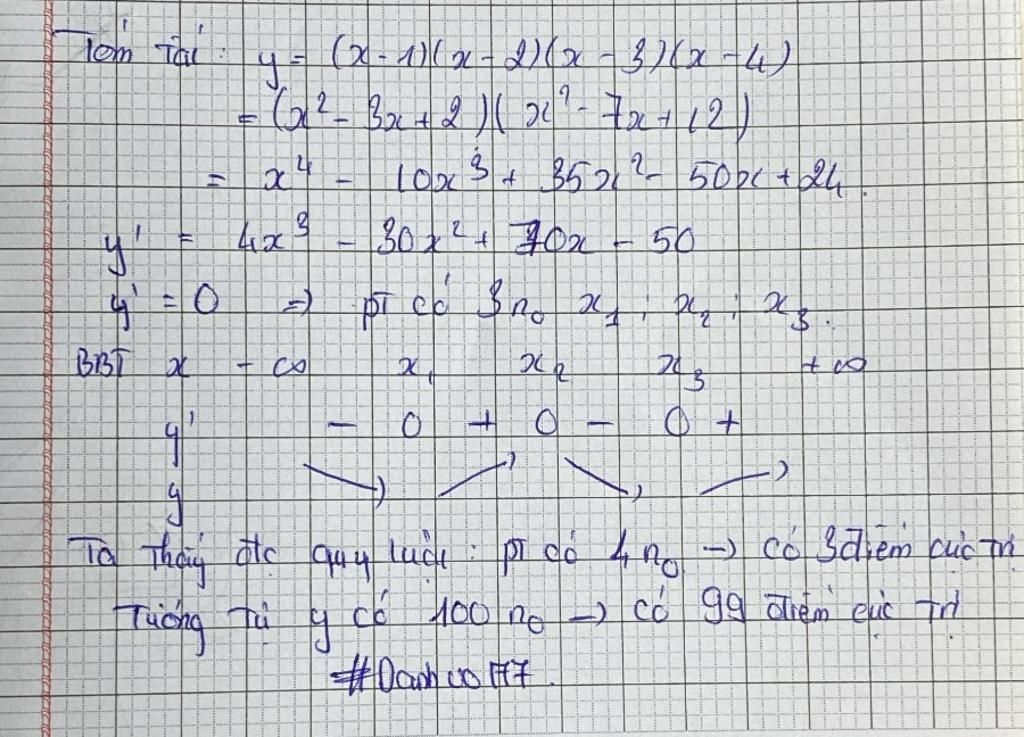 Tóm tắt: y = (x-1)(x-2)(x-3)(x-4)
= (x² - 3x + 2)(x² - 7x + 12)
= x⁴ - 10x³ + 35x² - 50x + 24.
y' = 4x³ - 30x² + 70x - 50
y' = 0 => pt có 3 n₀ x₁; x₂; x₃.
BBT x -∞ x₁ x₂ x₃ +∞
y' - 0 + 0 - 0 +
y ↘ ↗ ↘ ↗
Ta thấy đc quy luật: pt có 4 n₀ → có 3 điểm cực trị
Tương tự y có 100 n₀ → có 99 điểm cực trị